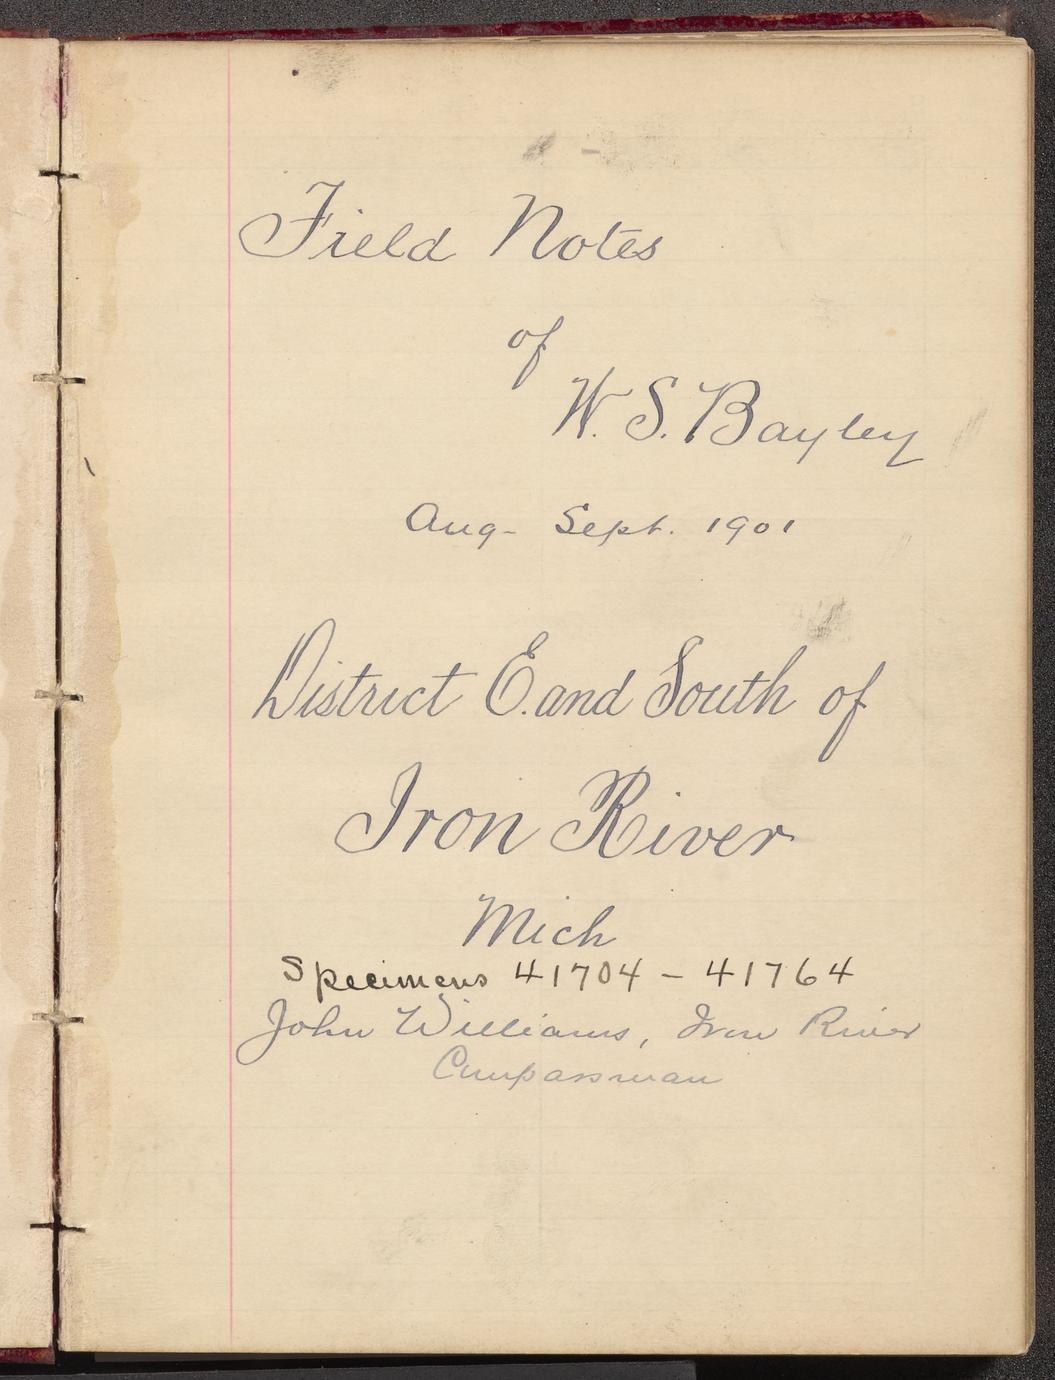 Field Notes
of
W. S. Bayley
Aug- Sept. 1901
District E. and South of
Iron River
Mich
Specimens 41704 - 41764
John Williams, Iron River
Compassman